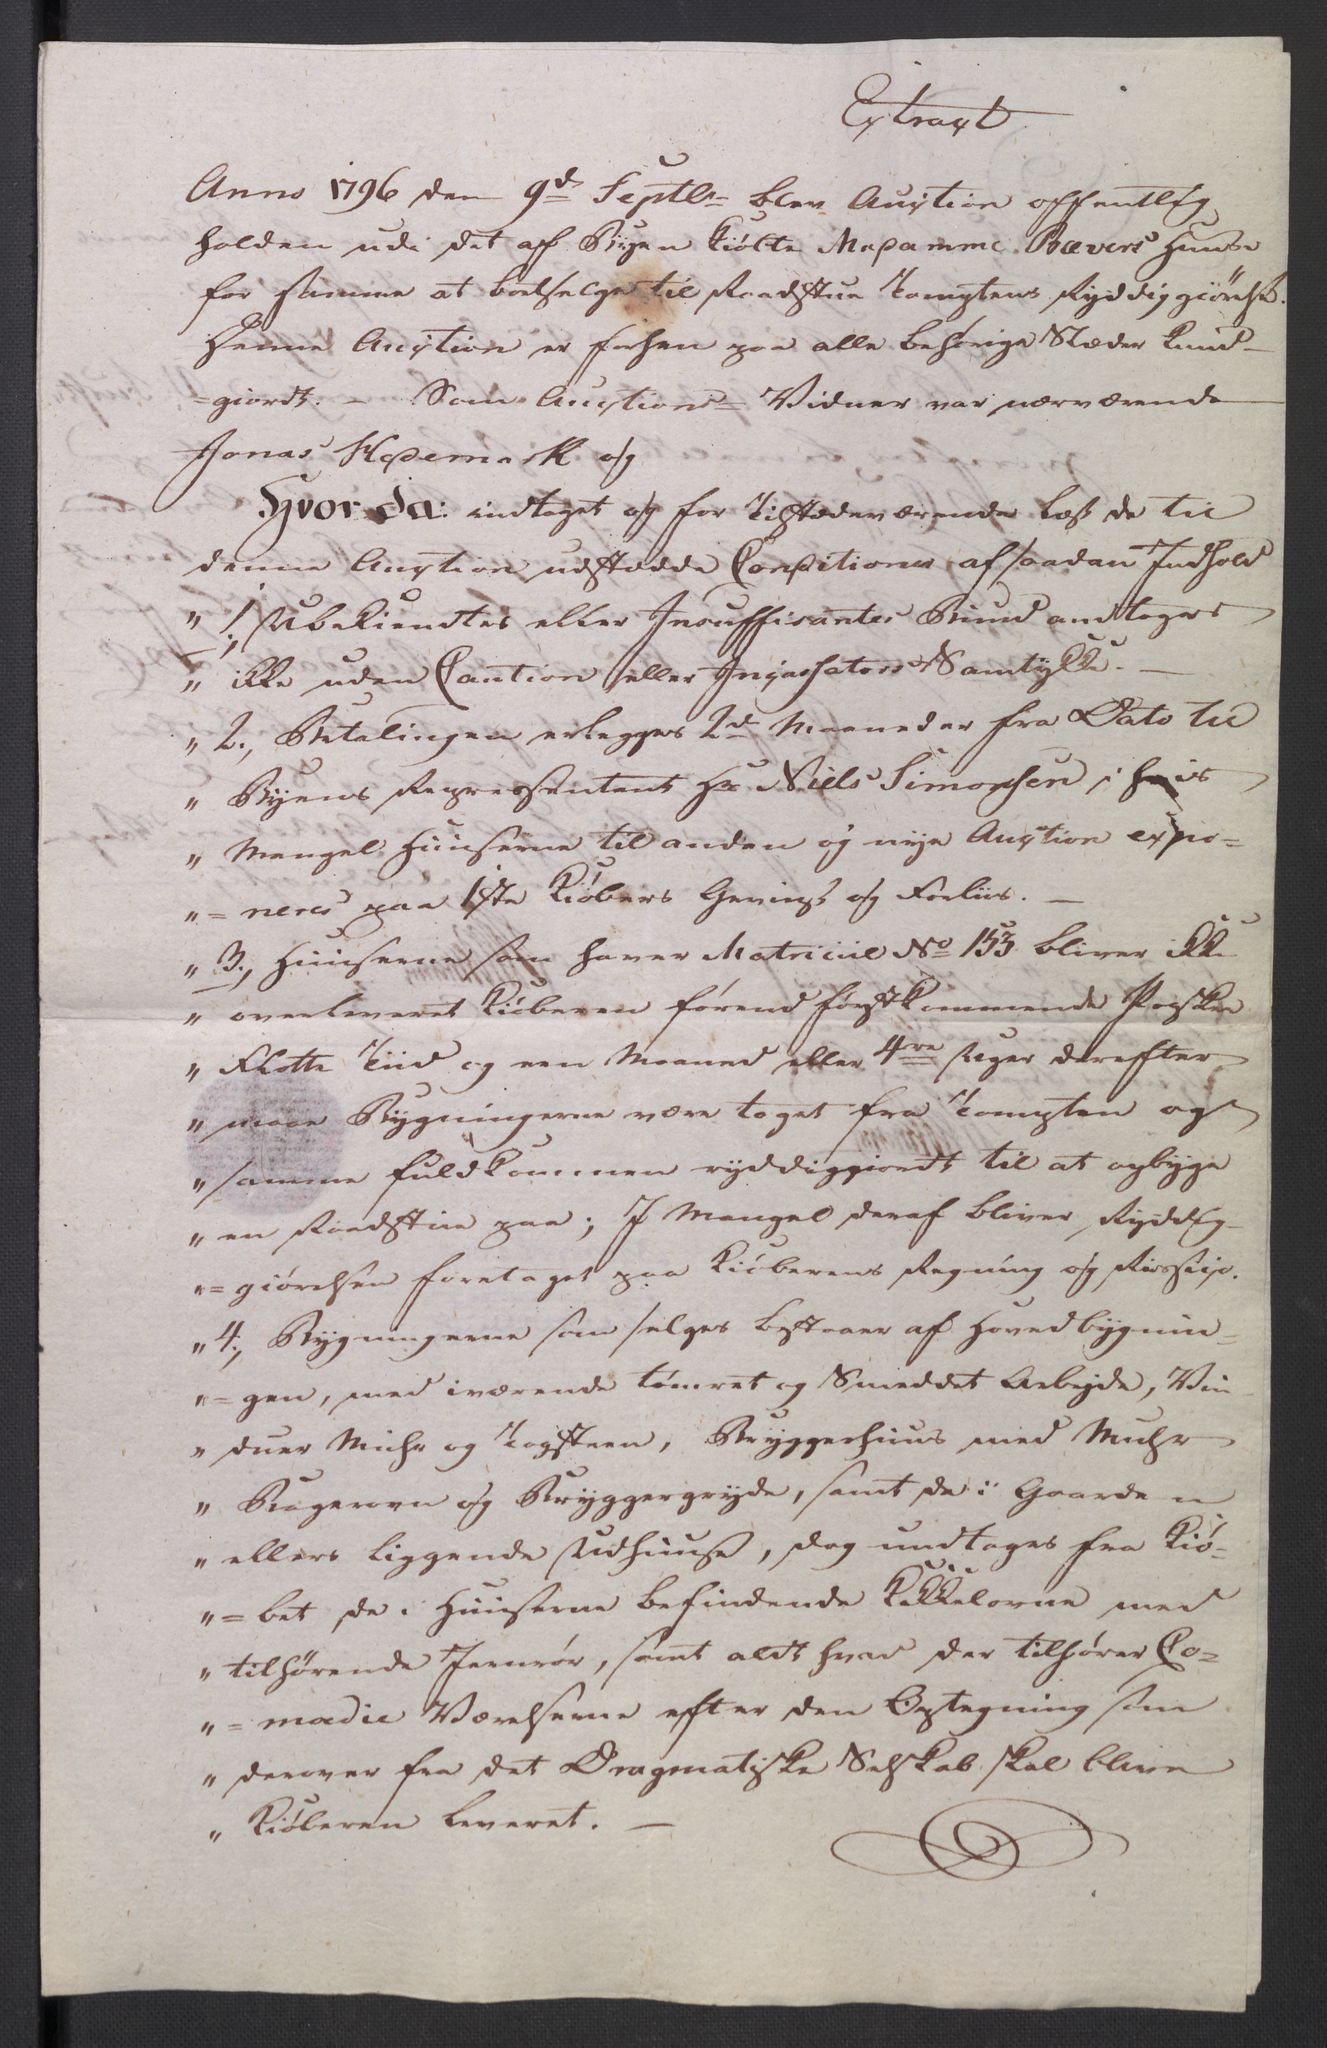 Extract
Anno 1796 den 9de Septbr blev Auction offentlig
holden udi det af Byen kiøbte Madamme Bævers Huuse
for samme at bortselge til Raadstue Tomptens Ryddiggiørelse.
Denne Auction er forhen paa alle behørige Stæder kund-
=giordt. – Som Auctions-Vidner var nærværende
Jonas Hedemark og
Hvor da: indtaget og for Tilstædeværende læst de til
denne Auction udstædde Conditioner af saadan Indhold
" 1., Ubekiendtes eller Insuffisantes Bund andtages
" ikke uden Caution eller Incassators Samtykke. –
" 2., Betalingen erlegges 2de Maaneder fra Dato til
" Byens Repræsentant Hr Niels Simonsen, i
" Mangel Huuserne til anden og nye Auction expo=
"= neres paa 1ste Kiøbers Gevinst og Forliis. –
" 3., Huuserne som haver Matricul No 153 bliver ikke
" overleveret Kiøberen førend førstkommende Paaske
" Flotte Tiid og een Maaned eller 4re Uger derefter
" maae Bygningerne være taget fra Tompten og
" samme fuldkommen ryddiggiordt til at opbygge
" en Raadstue paa; I Mangel deraf bliver Ryddig-
"= giørelsen foretaget paa Kiøberens Regning og Risico.
" 4., Bygningerne som selges bestaaer af Hovedbygnin=
"= gen, med iværende tømret og Smeddet Arbejde, Vin
" duer Muhr og Tagsteen, Bryggerhuus med Muhr
" Bagerovn og Bryggergryde, samt de i Gaarden
" ellers liggende Udhuuse, dog undtages fra Kiø=
"= bet de i Huuserne befindende Kakkelovne med
" tilhørende Jernrør, samt aldt hvad der tilhører Co=
"= mædie Værelserne efter den Optegning som
" derover fra det Dragmatiske Selskab skal blive
" Kiøberen leveret. –